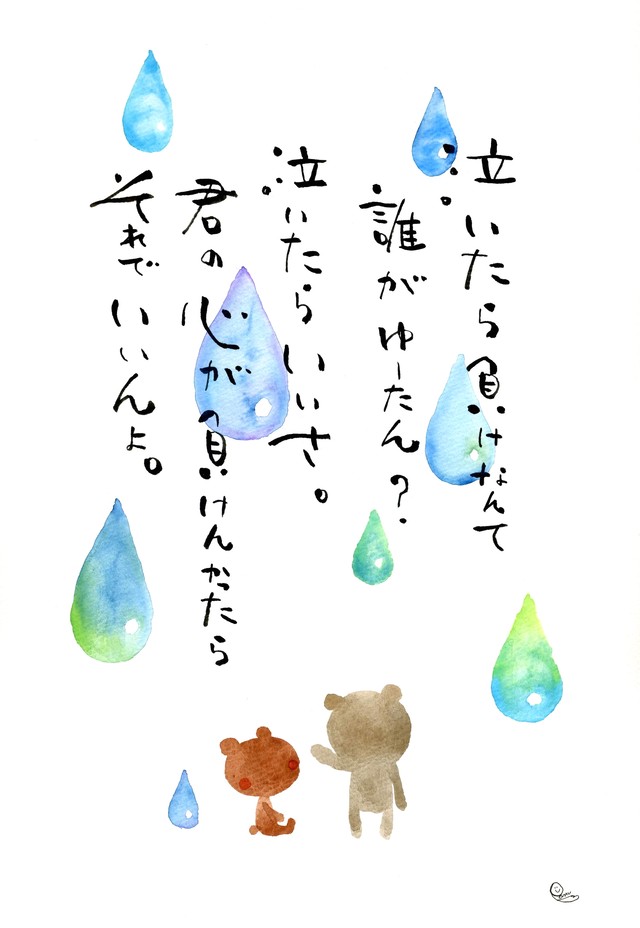 泣いたら負けなんて
誰がゆーたん?
泣いたらいいさ。
君の心が負けんかったら
それでいいんよ。